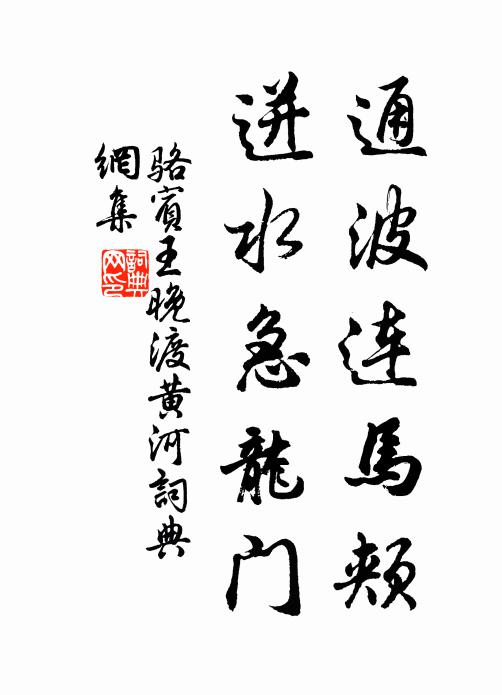 通波連馬頰
迸水急龍门
骆賓王晚渡黄河詞典
網集
詞典
网印